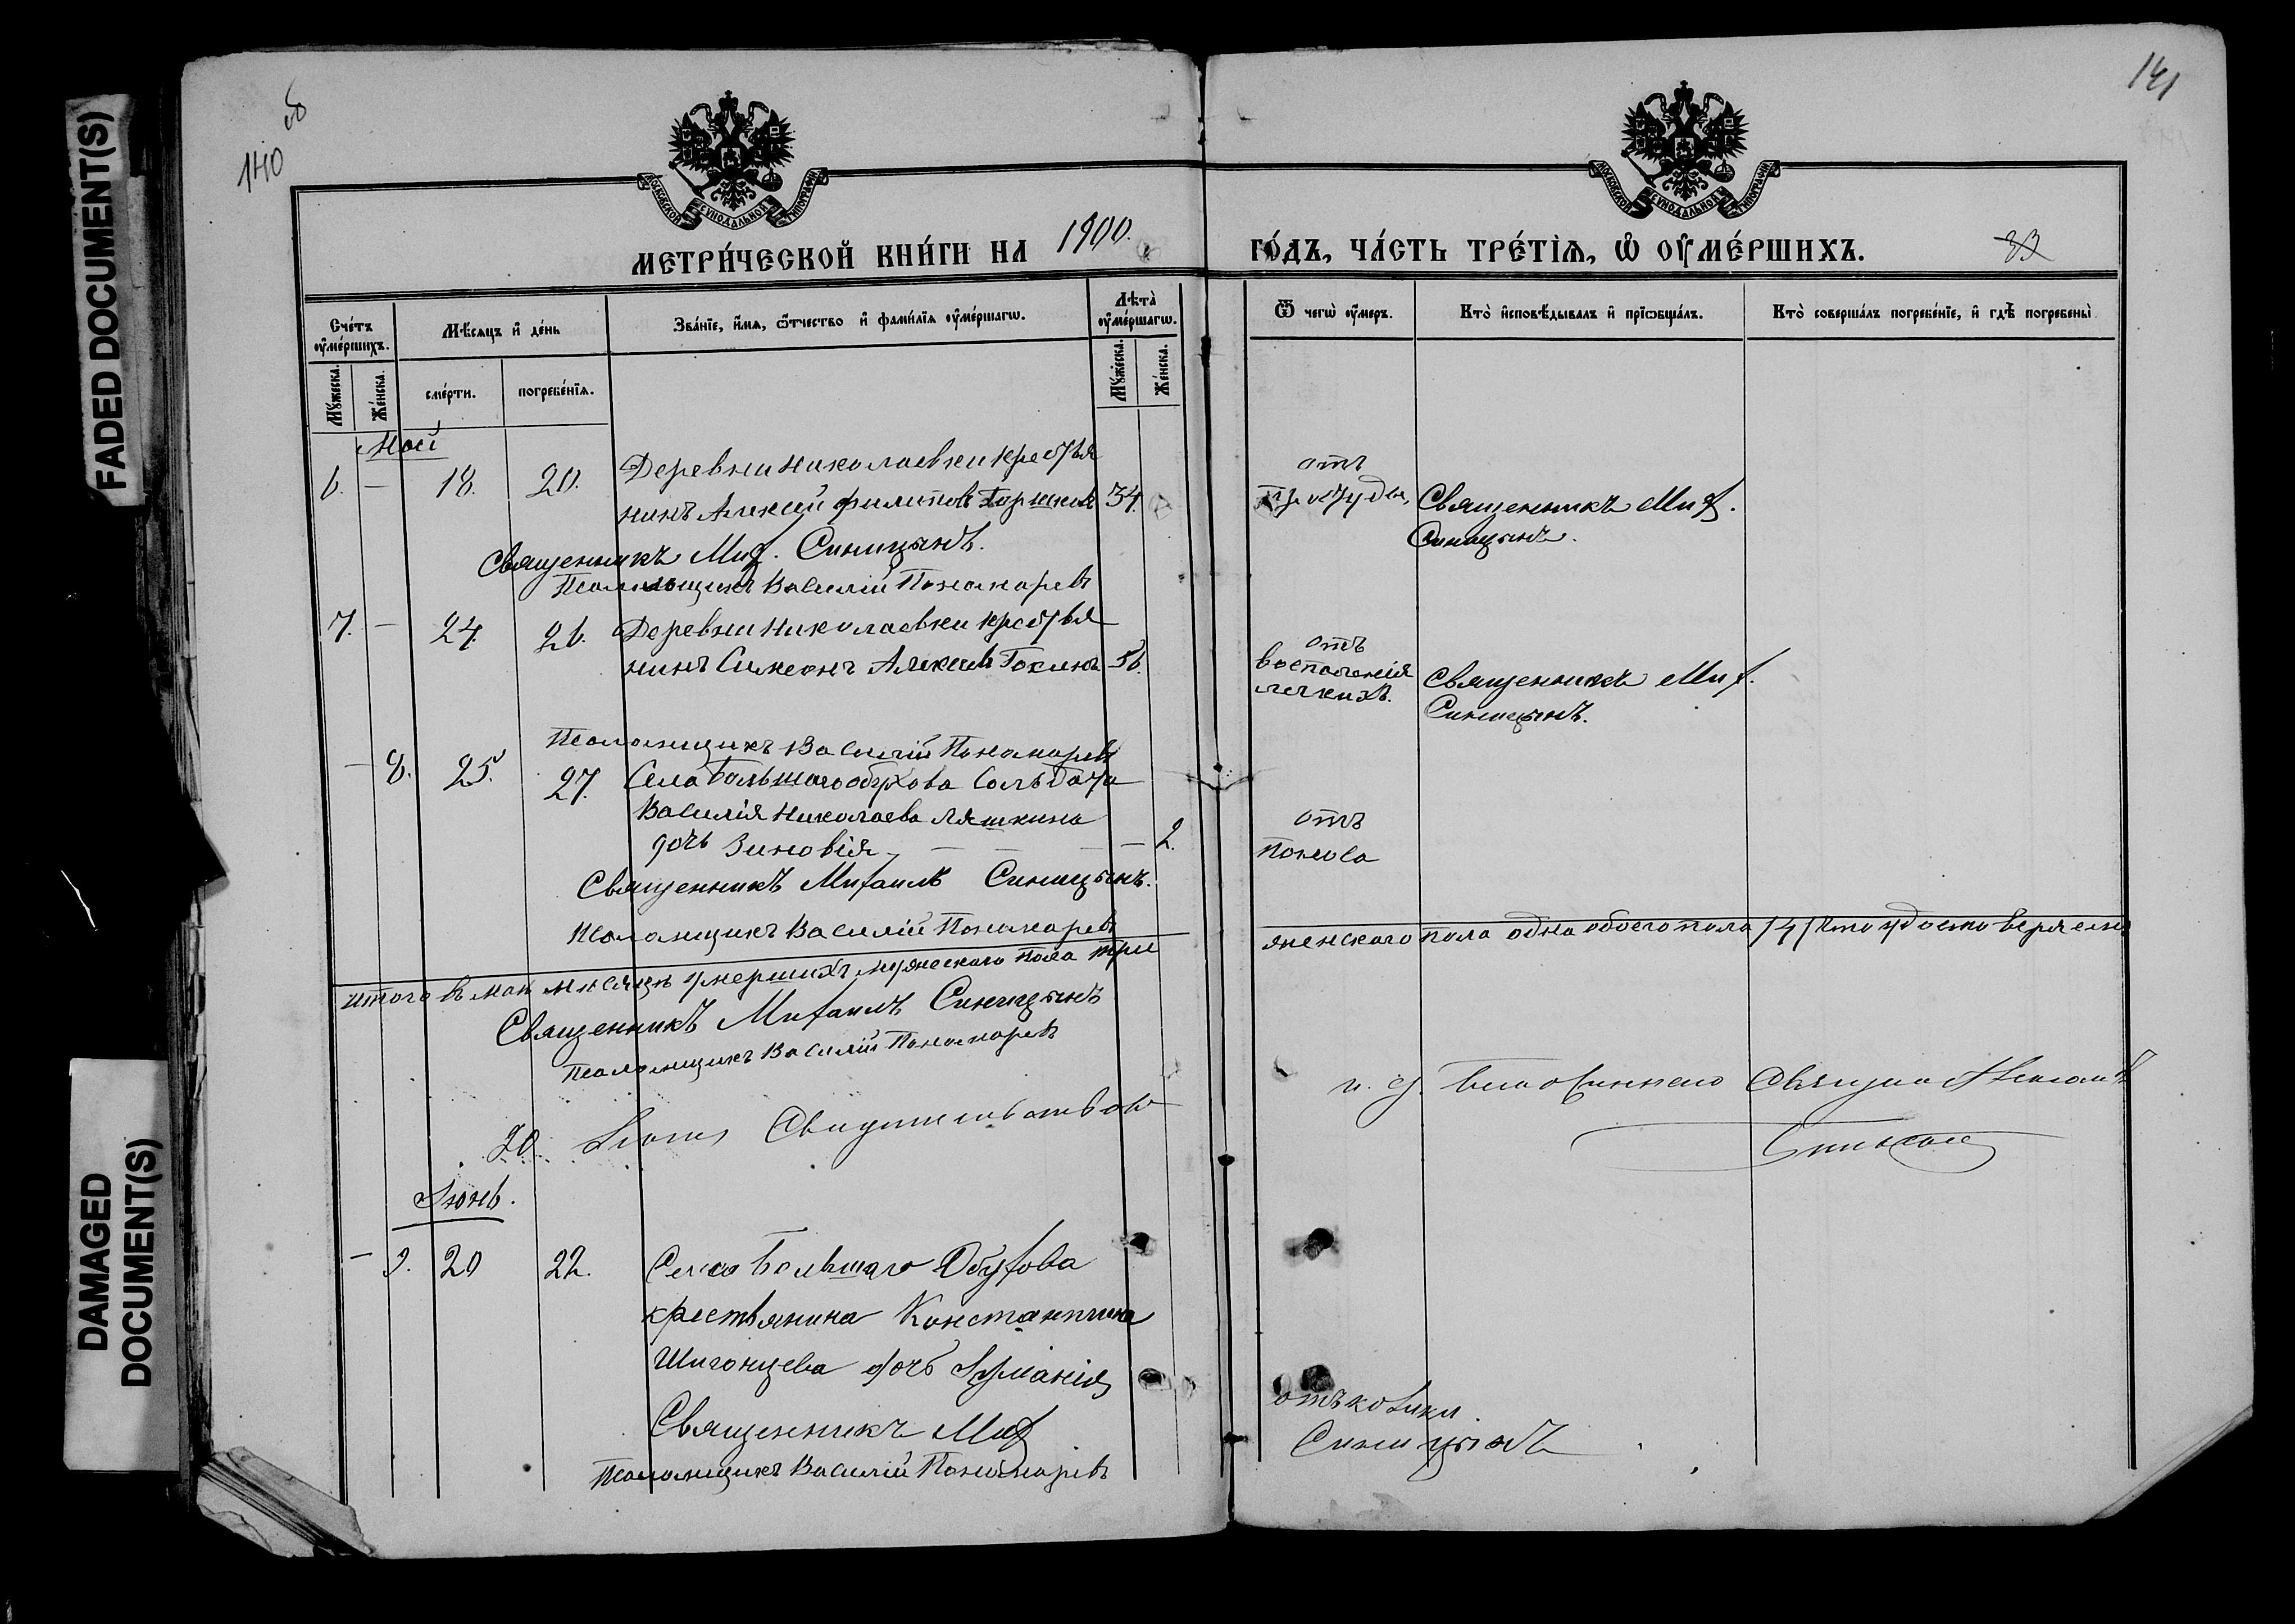 FADED DOCUMENT(S)
DAMAGED
DOCUMENT(S)
140 об
141
МОСКОВСКОЙ СУНОДАЛЬНОЙ ТИПОГРАФИИ
МОСКОВСКОЙ СУНОДАЛЬНОЙ ТИПОГРАФИИ
МЕТРИ́ЧЕСКОЙ КНИ́ГИ НА 1900.
ГО́ДЪ, ЧА́СТЬ ТРЕ́ТІѦ, Ѡ҆ ОУ҆МЕ́РШИХЪ.
33
Сче́тъ оу҆ме́ршихъ.
Мѣ́сѧцъ и҆ де́нь
Зва́нїе, и҆́мѧ, ѻ҆́тчество и҆ фами́лїѧ оу҆ме́ршагѡ.
Лѣ́та оу҆ме́ршагѡ.
Ѿ чегѡ̀ оу҆́меръ.
Кто̀ и҆сповѣ́дывалъ и҆ прїѡбща́лъ.
Кто̀ соверша́лъ погребе́нїе, и҆ гдѣ̀ погребены̀
Мꙋ́жеска.
Же́нска.
сме́рти.
погребе́нїѧ.
Мꙋ́жеска.
Же́нска.
Май
6. — 18. 20. Деревни Николаевки крестья
нинъ Алексѣй Филиповъ Горшковъ 34.
отъ
простуды,
Священникъ Мих.
Синицынъ.
Священникъ Мих. Синицынъ.
Псаломщикъ Василій Пономаревъ
7. — 24. 26. Деревни Николаевки крестья
нинъ Симеонъ Алексѣевъ Гокинъ 56.
отъ
воспаленія
легкихъ.
Священникъ Мих.
Синицынъ.
Псаломщикъ Василій Пономаревъ
— 8. 25. 27. Села Большаго Обухова Солдата
Василія Николаева Ляшкина
дочь Зиновія — — — 2.
отъ
поноса
Священникъ Михаилъ Синицынъ.
Псаломщикъ Василій Пономаревъ
Итого въ маѣ мѣсяцѣ умершихъ мужескаго пола три
женскаго пола одна обоего пола /4/ что удостовѣряемъ
Священникъ Михаилъ Синицынъ
Псаломщикъ Василій Пономаревъ
20 Свидетельствовалъ
и. д. Благочиннаго Священникъ
Іюнь.
— 9. 20 22. Села Большаго Обухова
крестьянина Константина
Шигонцева дочь Іуліанія
отъ колики.
Священникъ Мих
Синицынъ
Псаломщикъ Василій Пономаревъ